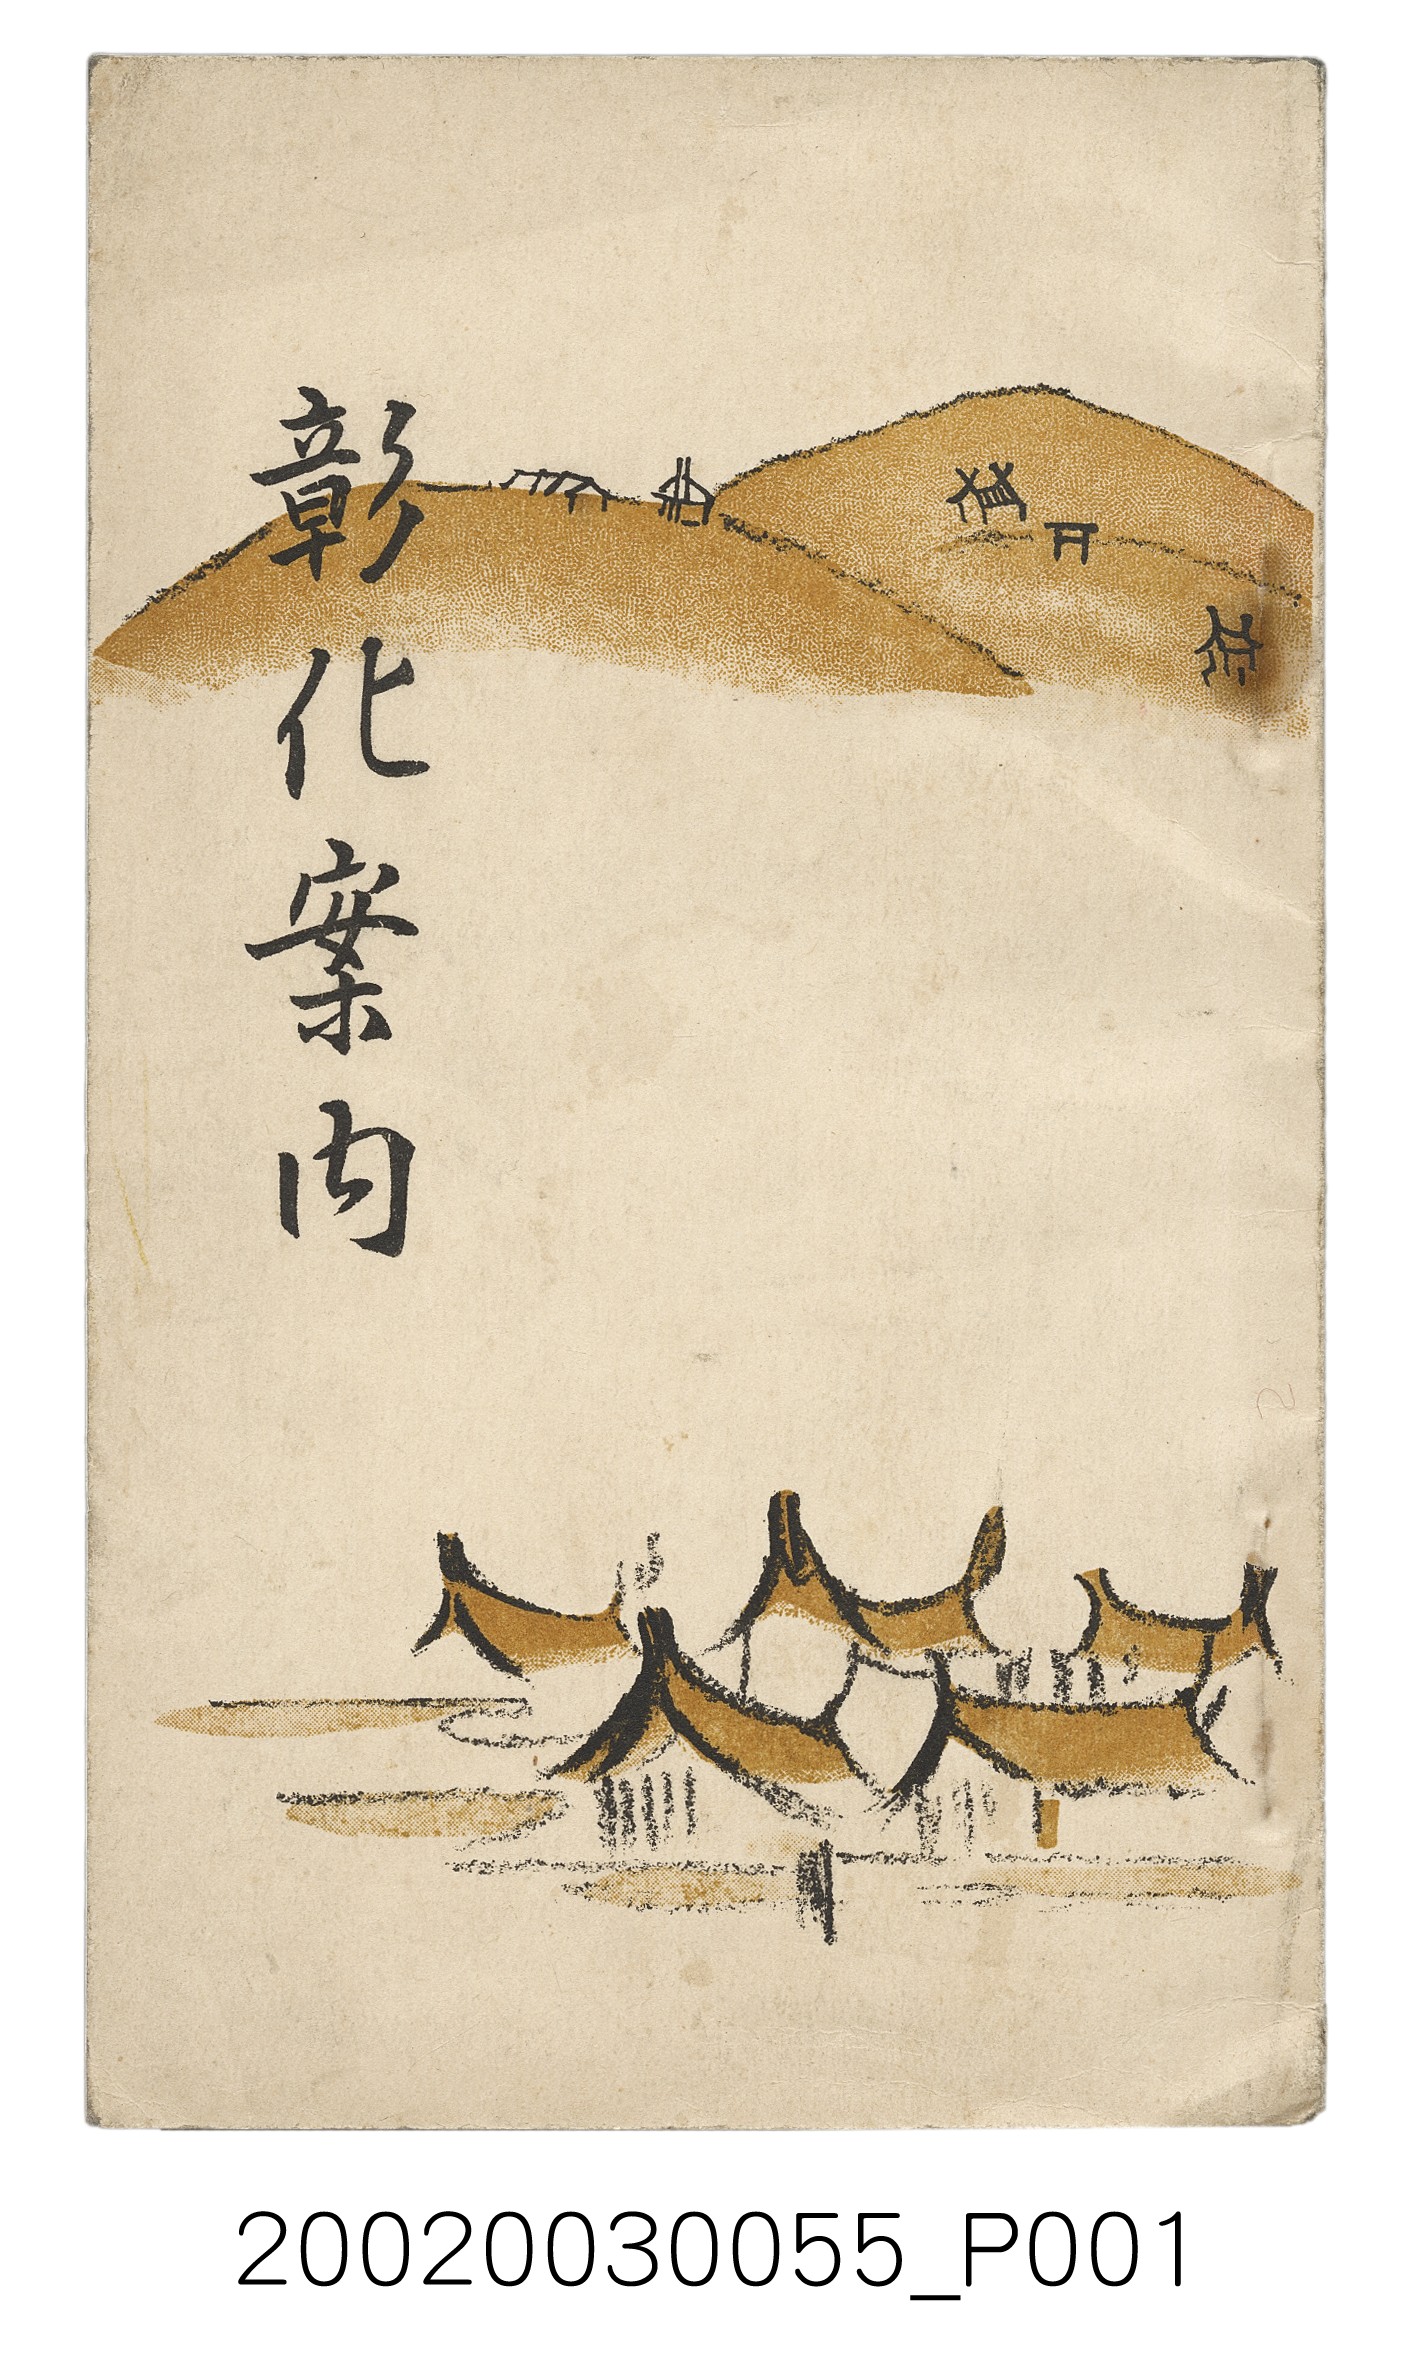 彰化案内
20020030055_P001